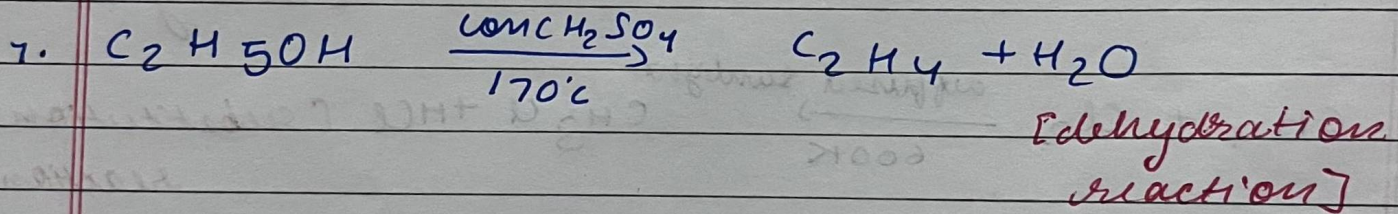 7. C₂H5OH conc H₂SO₄ → 170°C C₂H₄ + H₂O
[dehydration
reaction]